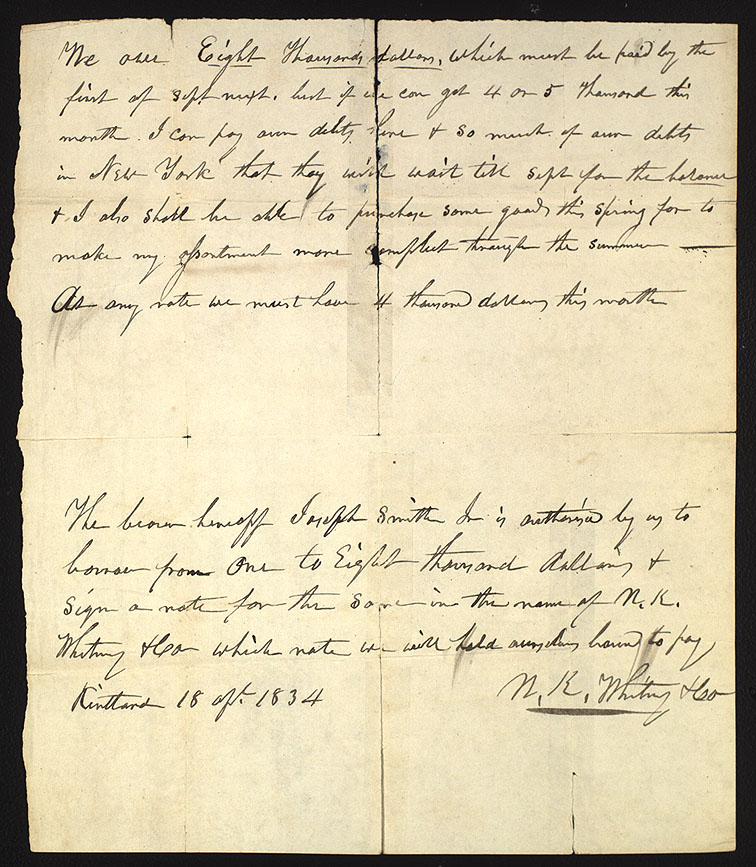 We owe Eight Thousands dollars, which must be paid by the
first of Sept next. but if we can get 4 or 5 thousand this
month. I can pay our debts here & so much of our debts
in New York that they will wait till Sept for the balance
& I also shall be able to purchase some goods this spring for to
make my assortment more complect through the summer —
At any rate we must have 4 thousand dollars this month
The bearer hereoff Joseph Smith Jr is authorised by us to
borrow from One to Eight thousand dollars &
sign a note for the same in the name of N. K.
Whitney & Co which note we will hold ourselves bound to pay
Kirtland 18 apl. 1834
N. K. Whitney & Co